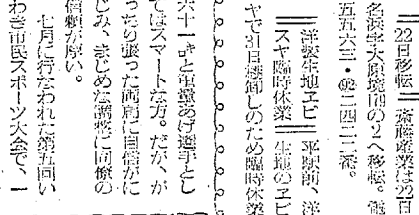 22日移転 斎藤産業は22日
名浜字大原境の2へ移転。電
五五六三・二四二二番。
洋装生地エビ 平駅前、洋
スヤ臨時休業 生地のエビ
ヤで31日棚卸しのため臨時休業
六十一㌔と重量あげ選手とし
てはスマートな方。だが、が
っちり張った両肩に自信がに
じみ、まじめな調整に同僚の
信頼が厚い。
七月に行なわれた第五回い
わき市民スポーツ大会で、一